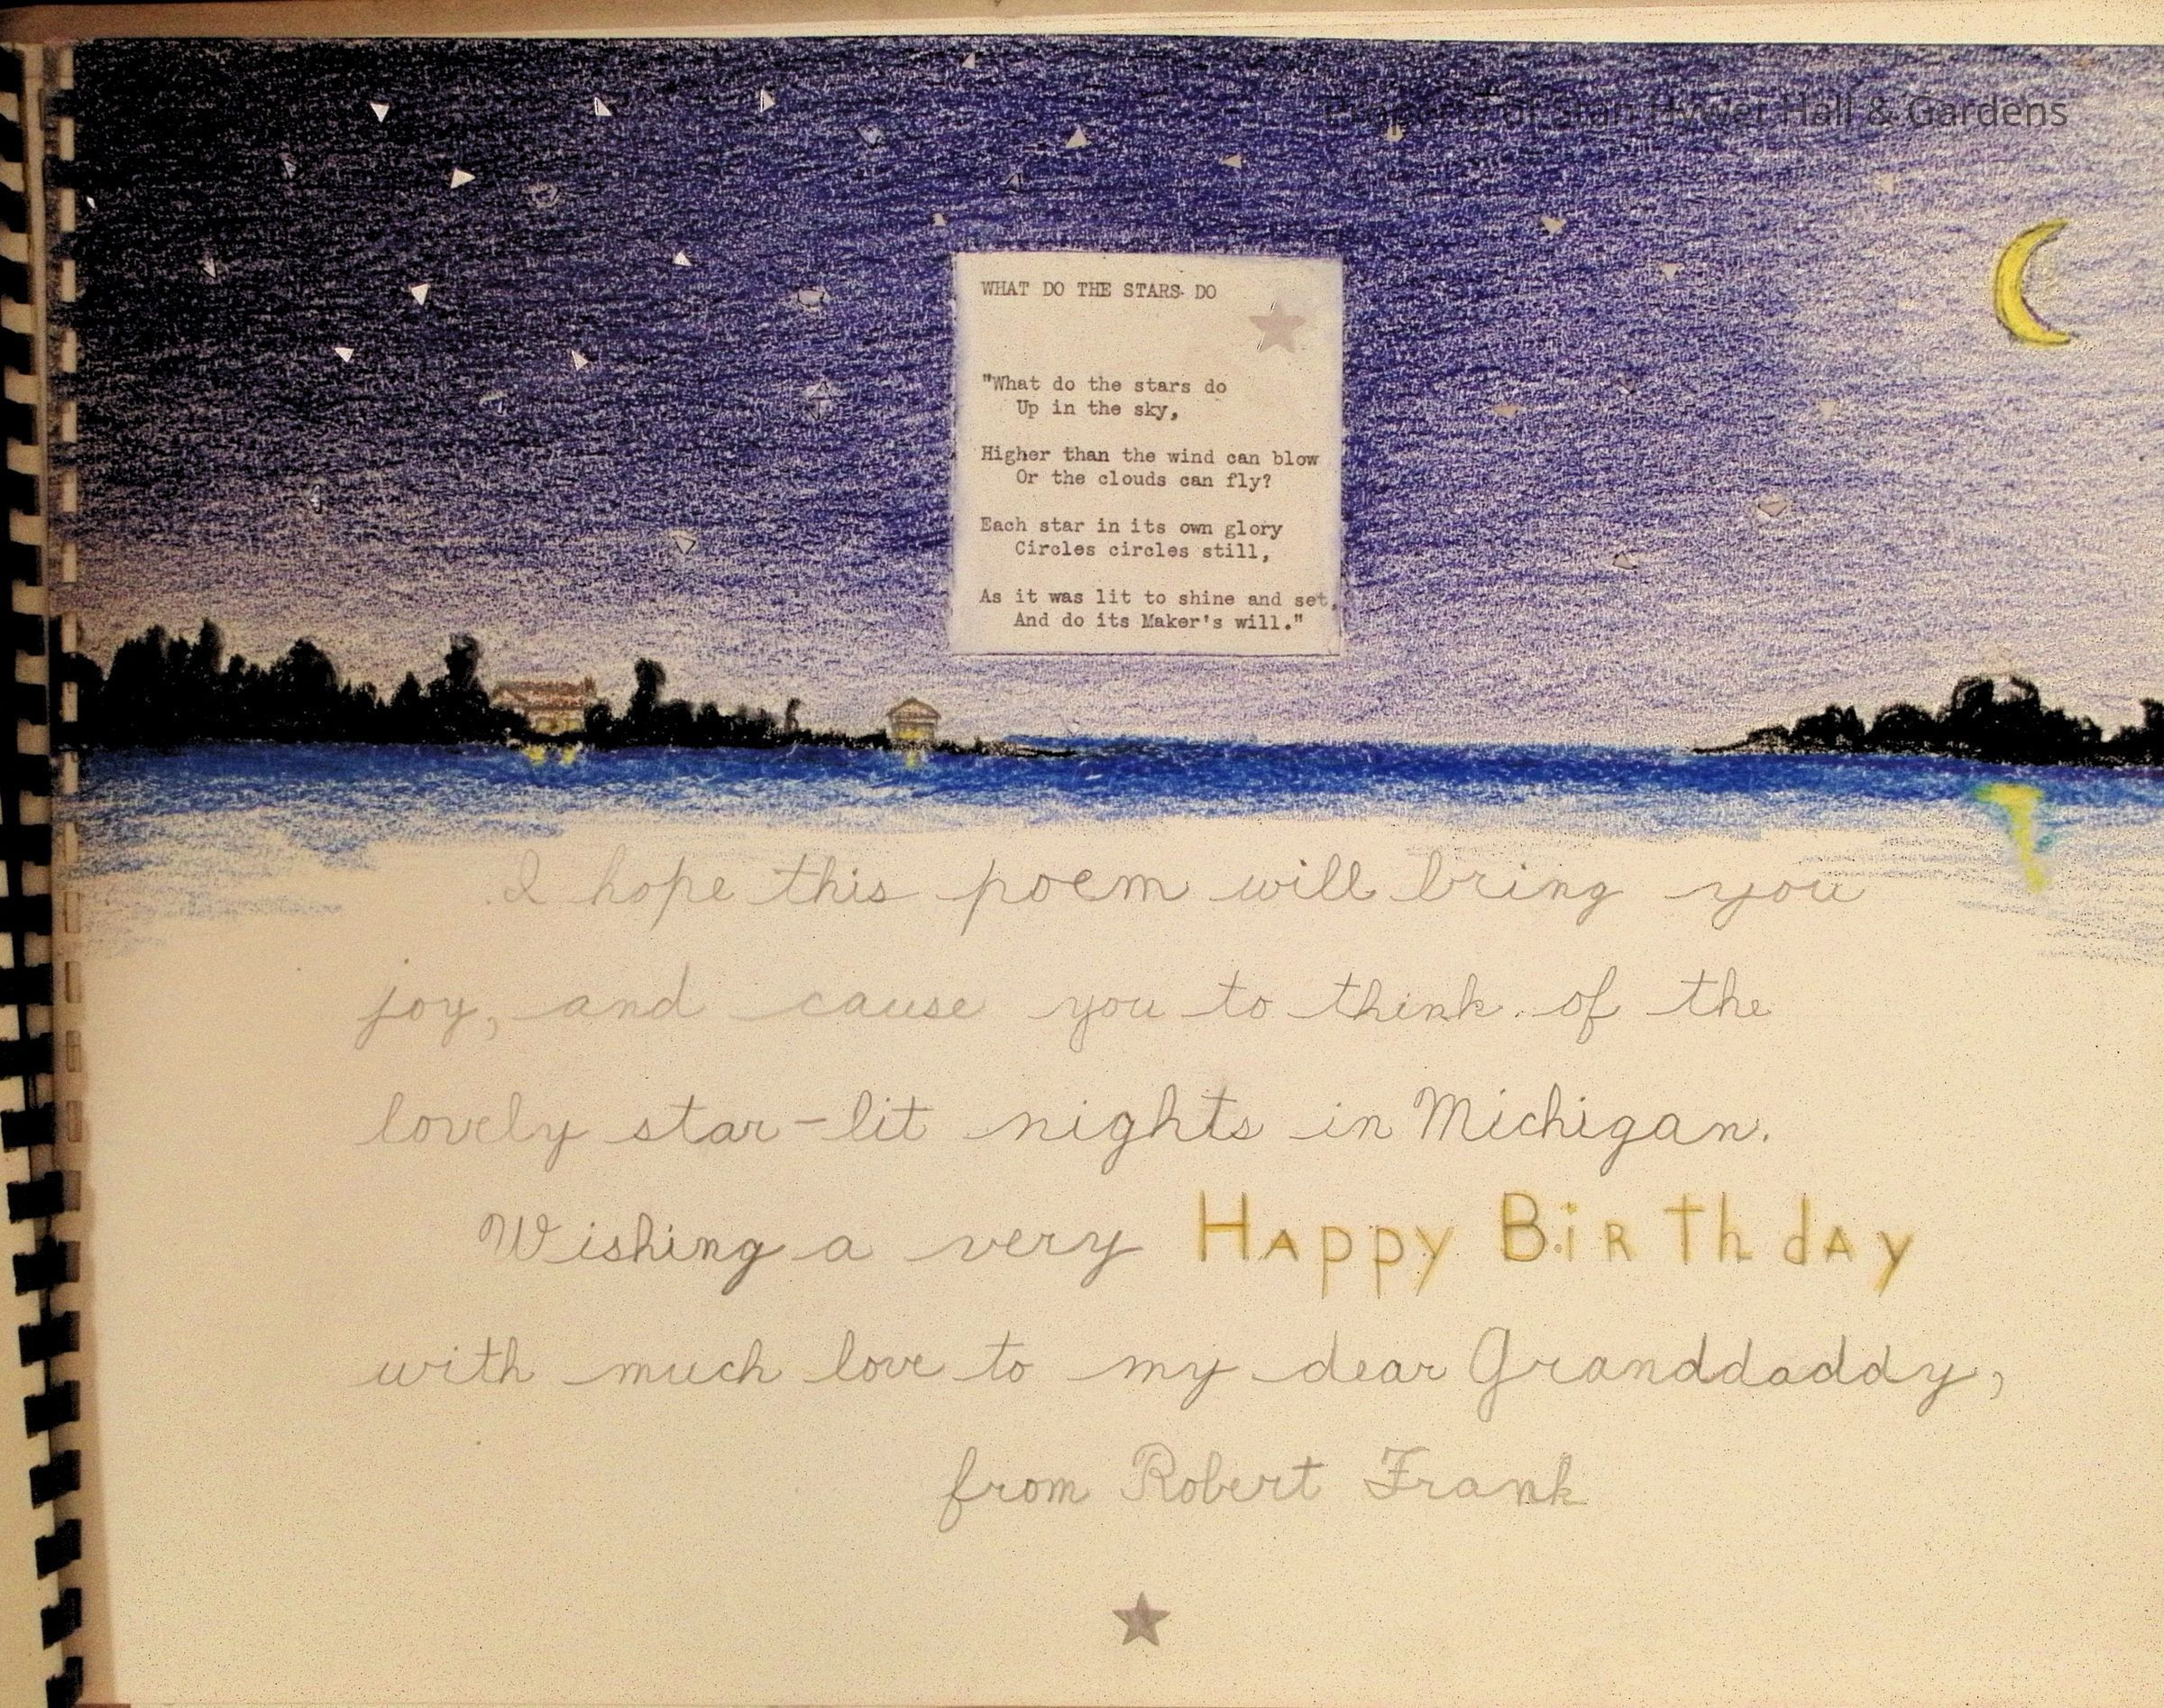 Property of Stan Hywet Hall & Gardens
WHAT DO THE STARS DO
"What do the stars do
Up in the sky,
Higher than the wind can blow
Or the clouds can fly?
Each star in its own glory
Circles circles still,
As it was lit to shine and set,
And do its Maker's will."
I hope this poem will bring you
joy, and cause you to think of the
lovely star-lit nights in Michigan.
Wishing a very HAppy BiRThdAy
with much love to my dear Granddaddy,
from Robert Frank